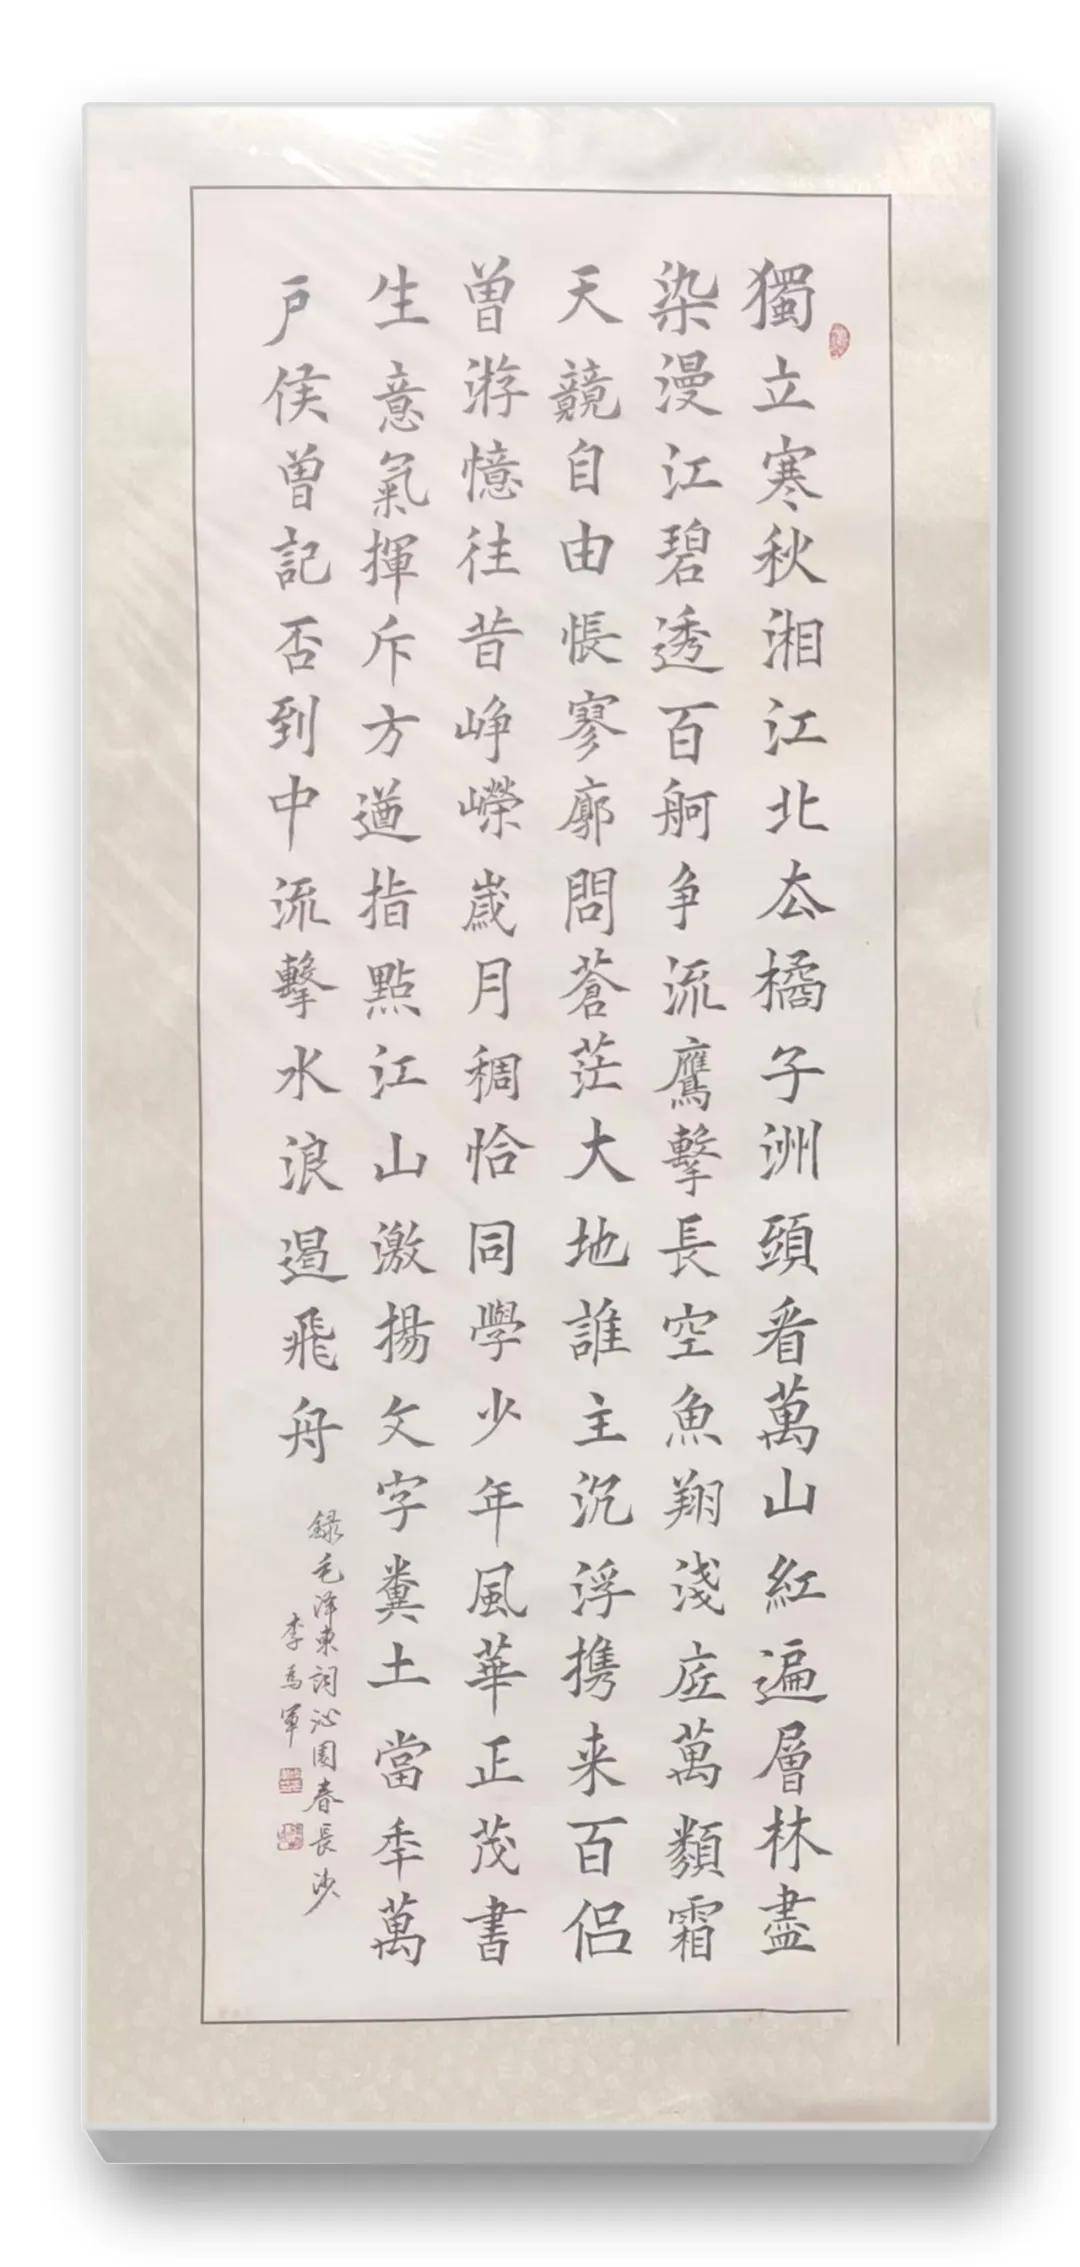 獨立寒秋湘江北厺橘子洲頭看萬山紅遍層林盡
染漫江碧透百舸争流鷹擊長空魚翔淺底萬類霜
天競自由悵寥廓問蒼茫大地誰主沉浮携来百侣
曾游憶往昔峥嶸崴月稠恰同學少年風華正茂書
生意氣揮斥方遒指點江山激揚文字糞土當年萬
戶侯曾記否到中流擊水浪遏飛舟
録毛泽東詞沁園春長沙
李為軍